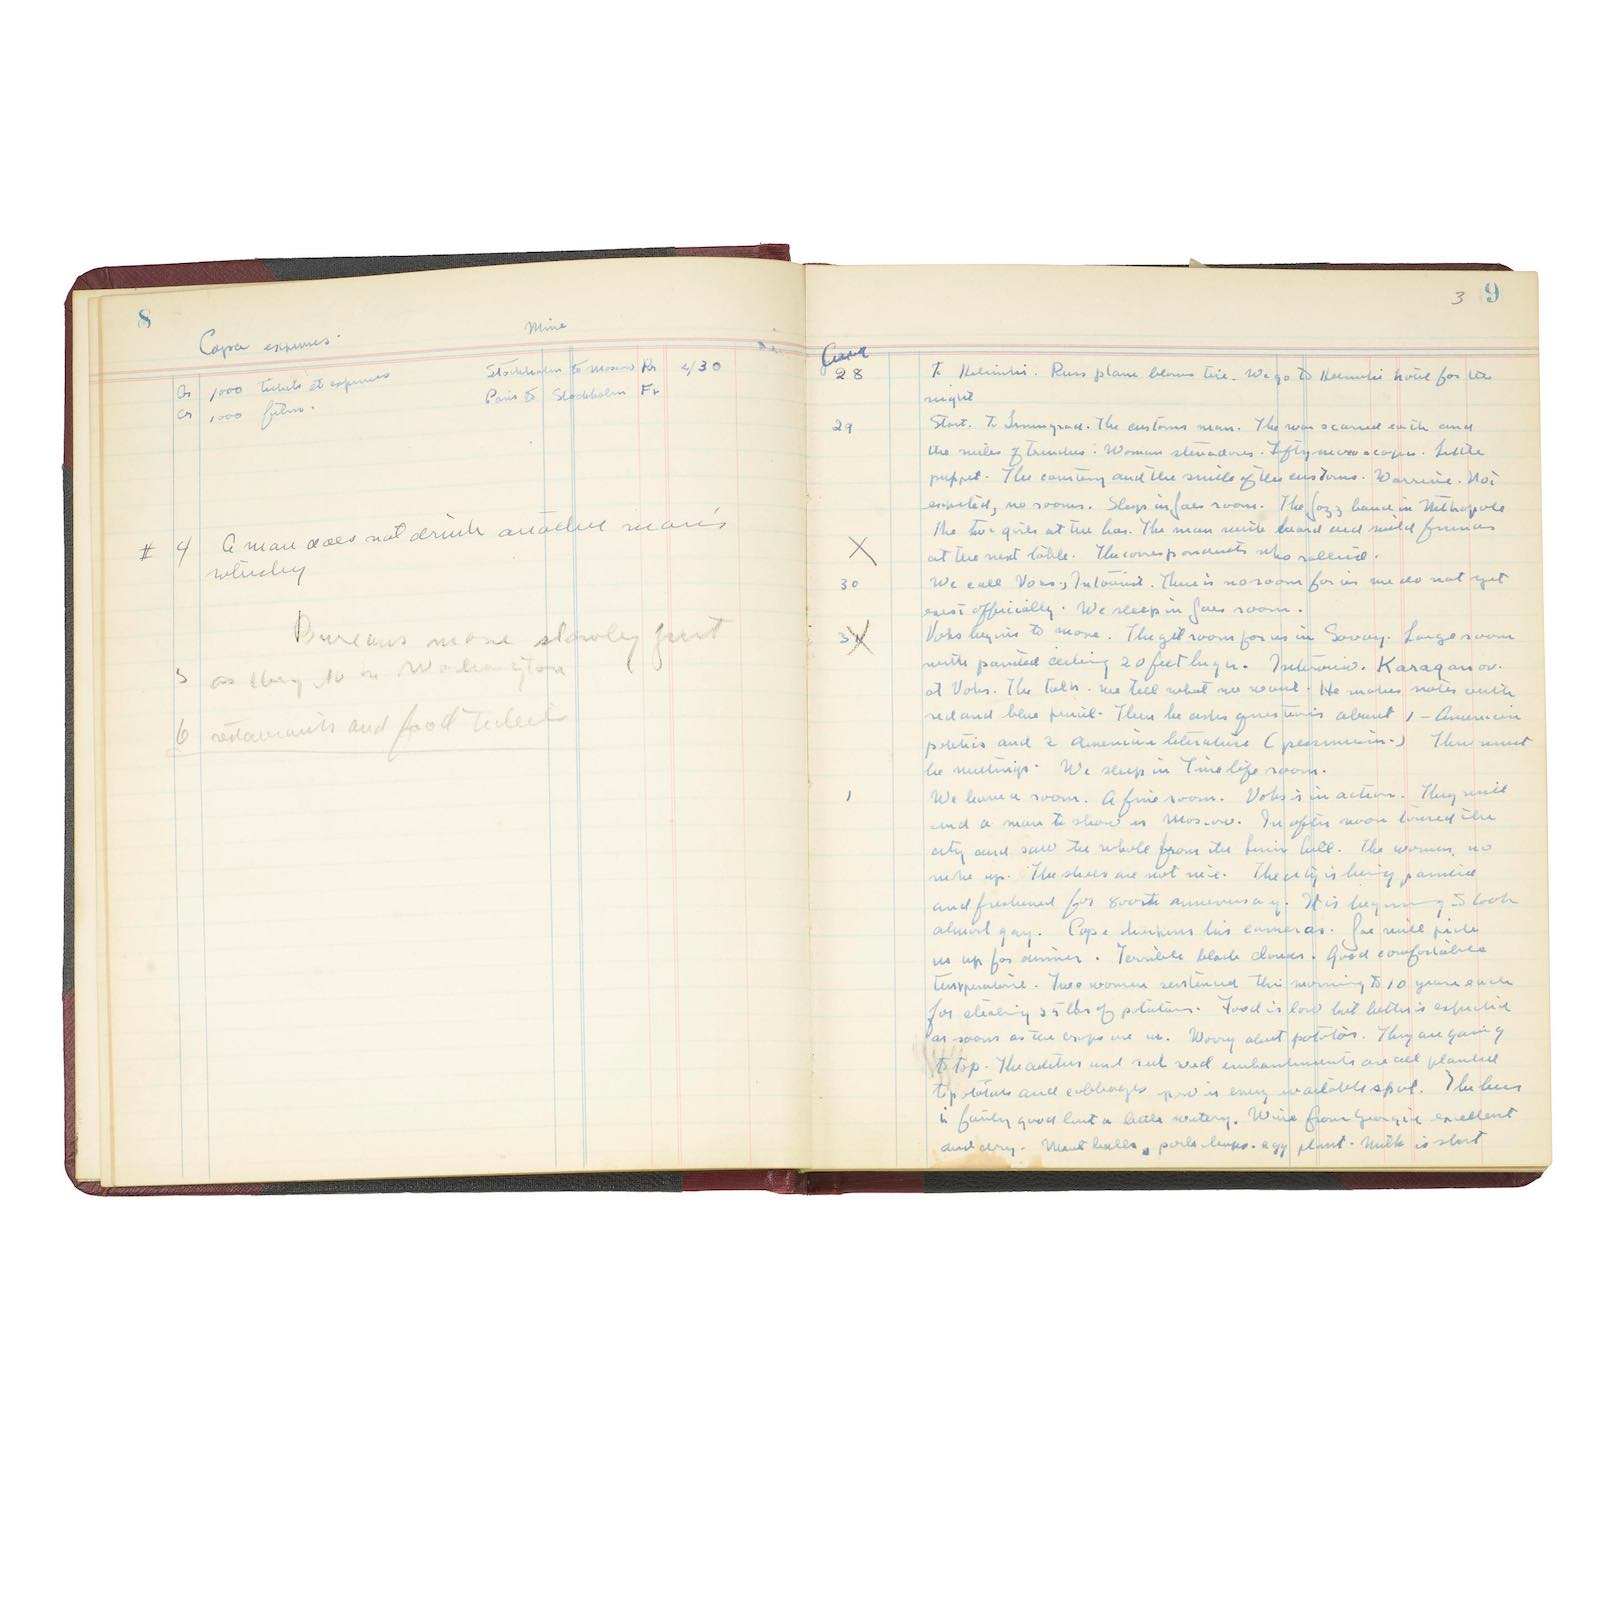 8
Capa expenses.
Mine
1000 tickets et expenses
Stockholm to Moscow Kr 430
1000 films.
Paris to Stockholm Fr
# 4 A man does not drink another man's
whiskey
Bureaus move slowly just
5 as they do in Washington
6 restaurants and food tickets
3 9
28 To Helsinki. Russ plane blows tire. We go to Helsinki hotel for the
night
29 Start. To Leningrad. The customs man. The war scarred earth and
the miles of trenches. Woman stevadores. Fifty microscopes. Little
puppet. The courtesy and the smile of the customs. Not
expected, no rooms. Sleep in Joes room. The Jazz band in Metropole
The two girls at the bar. The man with beard and
at the next table. The correspondents who rallied.
30 We call Voks, Intourist. There is no room for us we do not yet
exist officially. We sleep in Joes room.
31 Voks begins to move. They get room for us in Savoy. Large room
with painted ceiling 20 feet high. Interview. Karaganov.
at Voks. The talk. We tell what we want. He makes notes with
red and blue pencil. Then he asks questions about 1 - American
politics and 2 American literature ( ) There must
be meetings. We sleep in Time life room.
1 We have a room. A fine room. Voks is in action. They will
send a man to show us Moscow. In after noon toured the
city and saw the whole from the Lenin hill. The women, no
make up. The clothes are not nice. The city is being painted
and freshened for 800th anniversary. It is beginning to look
almost gay. Capa his cameras. Joe will pick
us up for dinner. Terrible black clouds. Good comfortable
temperature. Two women sentenced this morning to 10 years each
for stealing lbs of potatoes. Food is low but better is expected
as soon as the crops are in. Worry about potatoes. They are going
to top. The ditches and rail road embankments are all planted
to potatoes and cabbages in every available spot. The beer
is fairly good but a little watery. Wine from Georgia excellent
and dry. Meat balls, pork chops. egg plant. Milk is short